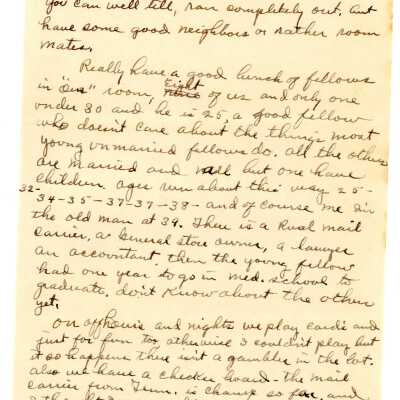 you can well till, ran completely out. but
have some good neighbors or rather room
mates.
Really have a good bunch of fellows
in "our" room, Eight of us and only one
under 30 and he is 25, a good fellow
who doesn't care about the things most
young unmarried fellows do. all the others
are married and all but one have
children. ages run about this way 25-
32-
34-35-37-37-38- and of course me Im
the old man at 39. There is a Rual mail
carrier, a General store owner, a lawyer
an accountant, then the young fellow
had one year to go in med. school to
graduate. don't know about the other
yet.
On off hours and nights we play cards and
just for fun too atherwise I couldn't play but
it so happens there isn't a gambler in the lot.
also we have a checker board - the mail
carrier from Tenn. is champ so far, and